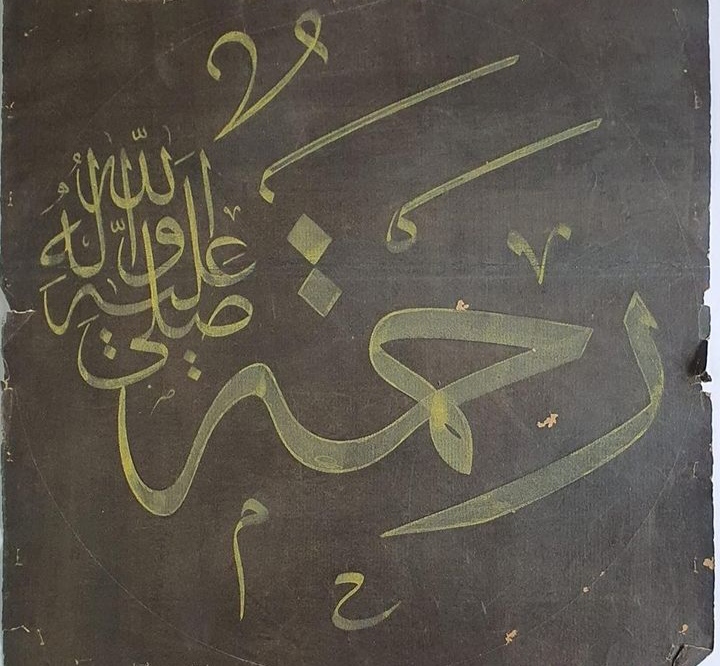 رَحْمَةٌ
صلى الله عليه واله
ح م